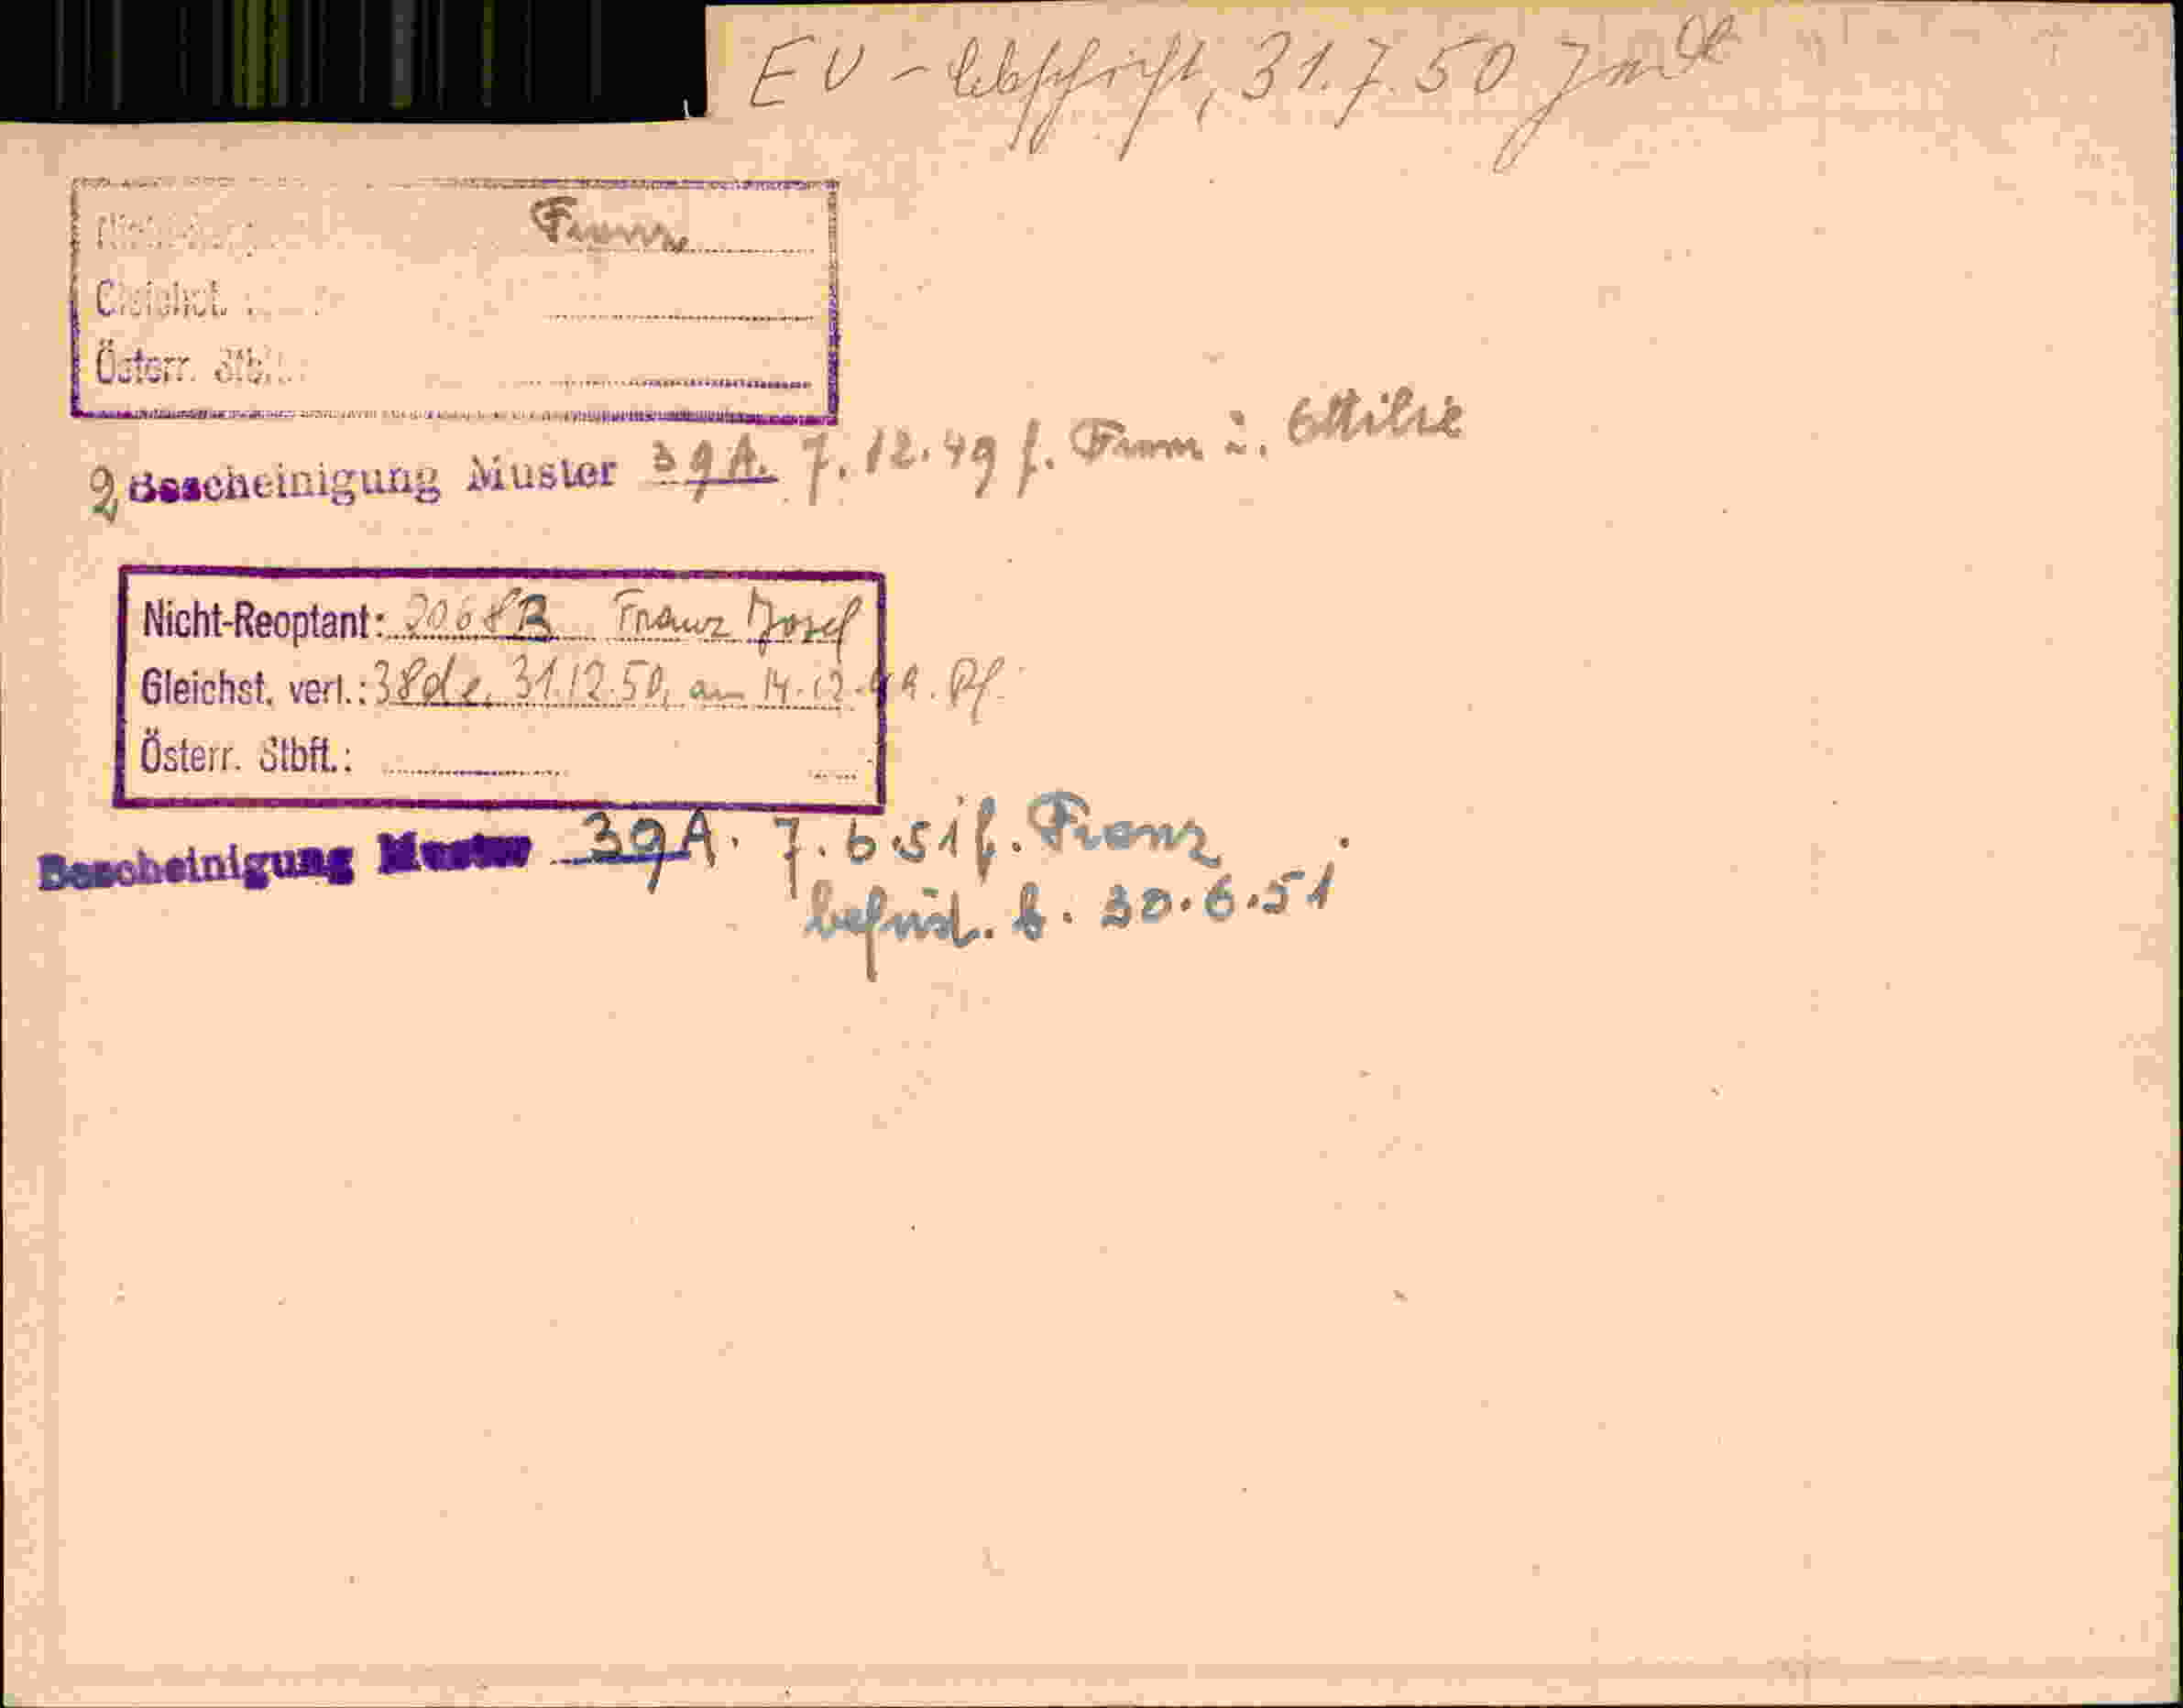 EV - Abschrift, 31.7.50
Franz
Gleichst.
Österr. Stbft.:
2 Bescheinigung Muster 39A. 7.12.49 f. Franz u. Ottilie
Nicht-Reoptant: 2068B Franz Josef
Gleichst. verl.: 38d2, 31.12.50, am 14.12.49. Pf.
Österr. Stbft.:
Bescheinigung Muster 39A. 7.6.51 f. Franz
befrist. b. 30.6.51